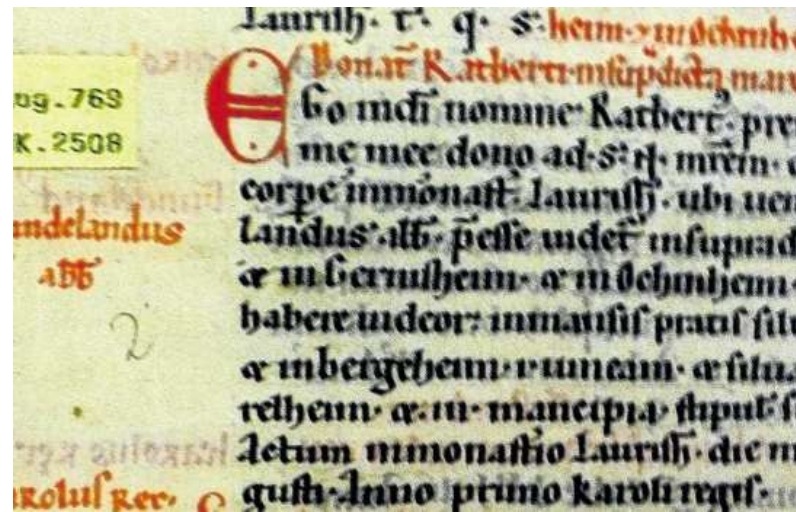 Laurish. t. q. s. heim. 
Donat Ratberti. in sup dicta mar
Ego in di nomine Ratbert. pre
me mee dono ad. s. N. mrem.
corpe inmonast. Laurish. ubi uen
landus. abb. pesse uidet. insuprad
& in Gernisheim. & in Ochinheim.
habere uideor. inmansis pratis silu
& in bergeheim. & silu
relheim. & .III. mancipia. stipul
Actum inmonastio Laurish. die
gusti. Anno primo karoli regis.
ug.769
K.2508
undelandus
abb
2
karolus rex.